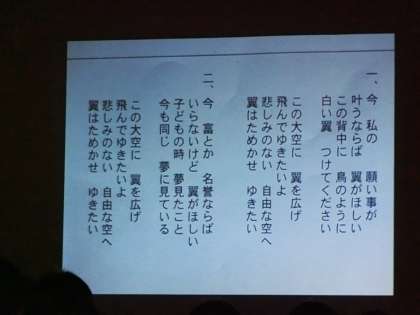 一、今 私の 願い事が
叶うならば 翼がほしい
この背中に 鳥のように
白い翼 つけてください
この大空に 翼を広げ
飛んでゆきたいよ
悲しみのない 自由な空へ
翼はためかせ ゆきたい
二、今 富とか 名誉ならば
いらないけど 翼がほしい
子どもの時 夢見たこと
今も同じ 夢に見ている
この大空に 翼を広げ
飛んでゆきたいよ
悲しみのない 自由な空へ
翼はためかせ ゆきたい